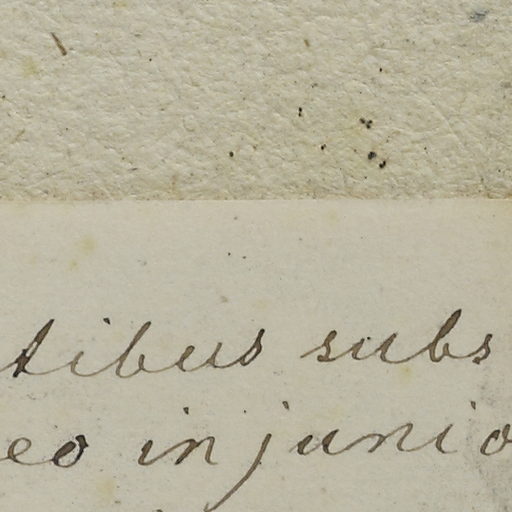 tibus subs
eo in junio